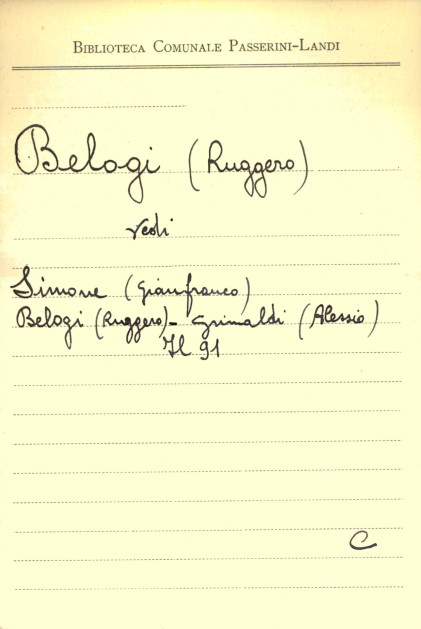 BIBLIOTECA COMUNALE PASSERINI-LANDI
Belogi (Ruggero)
vedi
Simone (Gianfranco)
Belogi (Ruggero)- Grimaldi (Alessio)
Il 91
C